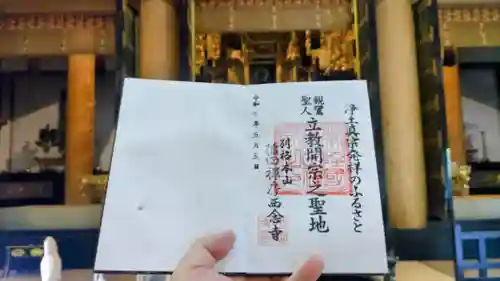 浄土真宗発祥のふるさと
親鸞
聖人 立教開宗之聖地
別格本山
稲田禅房西念寺
令和 年五月五日